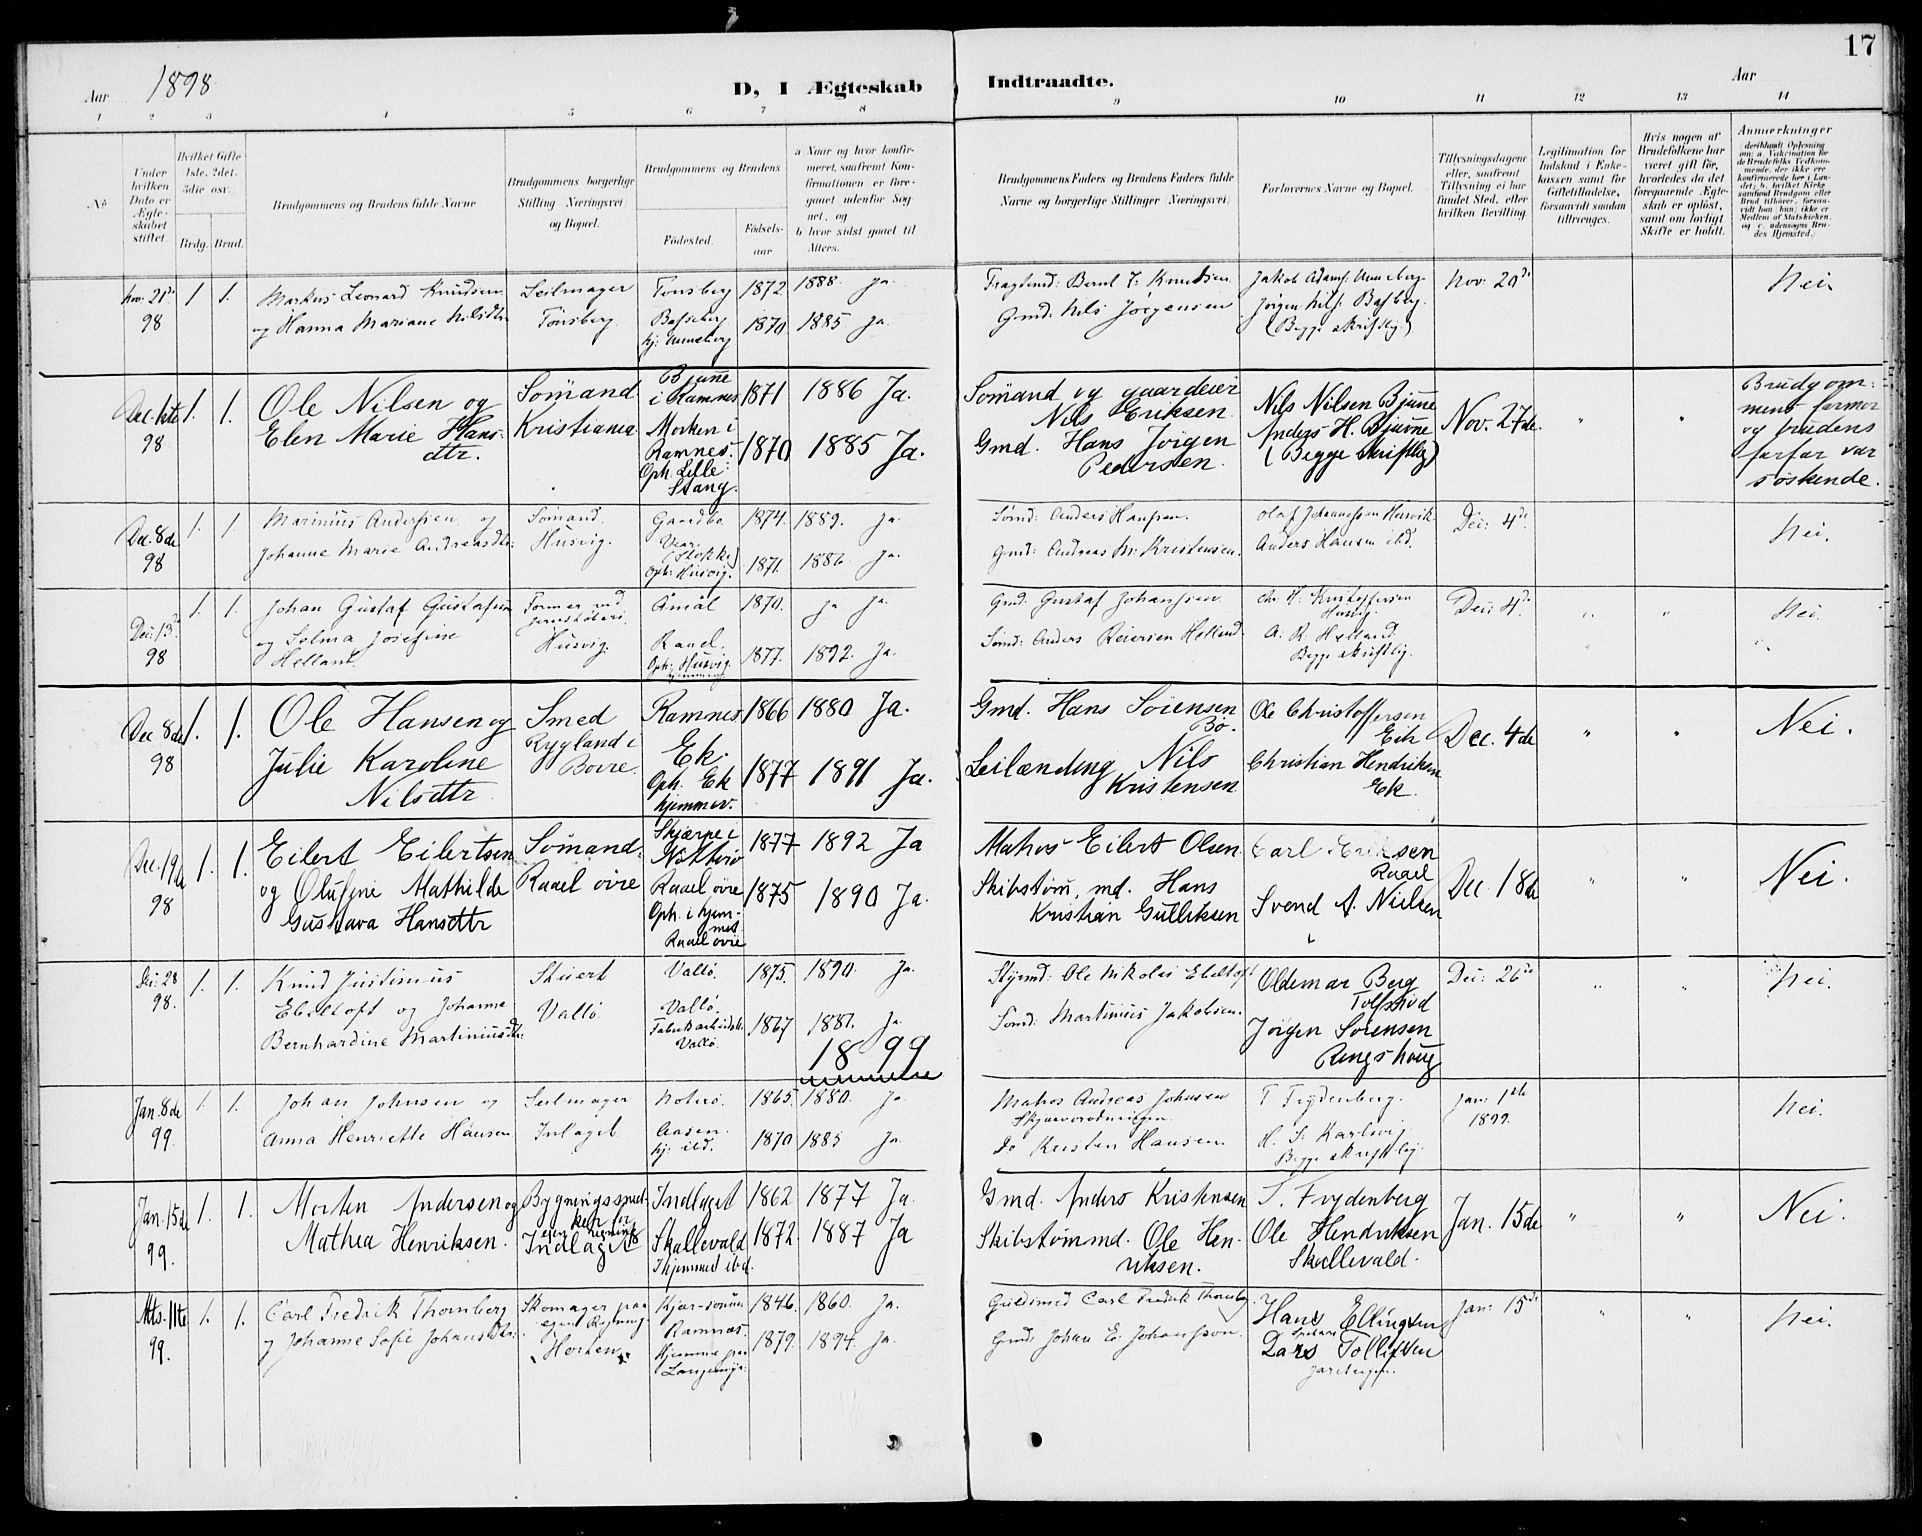 17
Aar 1898
D, I Ægteskab Indtraadte.
Aar
1 2 3 4 5 6 7 8 9 10 11 12 13 14
No
Under hvilken Dato er Ægteskabet stiftet.
Hvilket Gifte 1ste, 2det, 3die osv.
Brdg. Brud.
Brudgommens og Brudens fulde Navne
Brudgommens borgerlige Stilling Næringsvei og Bopæl.
Brudgommens og Brudens
Födested.
Födselsaar
a Naar og hvor konfirmeret, saafremt Konfirmationen er foregaaet udenfor Sognet, og
b hvor sidst gaaet til Alters.
Brudgommens Faders og Brudens Faders fulde Navne og borgerlige Stillinger Næringsvei
Forlovernes Navne og Bopæl.
Tillysningsdagene eller, saafremt Tillysning ei har fundet Sted, efter hvilken Bevilling.
Legitimation for Indskud i Enkekassen samt for Giftetilladelse, forsaavidt saadan tiltrænges.
Hvis nogen af Brudefolkene har været gift för, hvorledes da det foregaaende Ægteskab er oplöst, samt om lovligt Skifte er holdt.
Anmerkninger
Nov. 21de 98 1 1. Markus Leonard Knudsen og Hanna Mariane Nilsdtr. Seilmager Tönsberg. Tönsberg 1872 1888. Ja. Basberg hj: Unneberg 1870 1885 Ja. Fragtmd: Bernt J. Knudsen Gmd: Nils Jörgensen Jakob Adams: Unneberg. Jörgen Nils: Basberg. (Begge skriftlig) Nov. 20de Nei.
Dec. 11te 98 1. 1. Ole Nilsen og Elen Marie Hansdtr. Sömand Kristiania Bjune i Ramnes 1871 1886 Ja. Morken i Ramnes. Oph. Lille Stang. 1870 1885 Ja. Sömand og gaardeier Nils Eriksen. Gmd. Hans Jörgen Pedersen. Nils Nilsen Bjune Anders H. Bjuvne (Begge skriftlig) Nov. 27de. " " Brudgommens farmor og brudens farfar var söskende.
Dec. 8de 98 1. 1. Marinius Anderssen og Johanne Marie Andreasdtr: Sömand. Husvig. Gaardbo. 1874. 1889. Ja. Vear (Stokke) Oph: Husvig. 1871. 1886 Ja. Sömd: Anders Hansen. Gmd: Andreas M: Kristensen. Olaf Johannessen Husvik Anders Hansen ibd. Dec: 4de Nei.
Dec: 13de 98 1. 1. Johan Gustaf Gustafsson og Selma Josefine Helland. Former ved jernstöberi. Husvig. Åmål 1870. Ja Ja. Raael. Oph: Husvig 1877. 1892. Ja. Gmd: Gustaf Johanssen. Sömd: Anders Reiersen Helland. Chr. H. Kristoffersen Husvig. A. R. Helland. Begge skriftlig. Dec: 4de " " Nei.
Dec 8de 98 1. 1. Ole Hansen og Julie Karoline Nilsdtr. Smed Rygland i Borre. Ramnes 1866 1880 Ja. Ek. Oph. Ek hjemmev. 1877 1891 Ja. Gmd. Hans Sörensen Bö. Leilænding Nils Kristensen Ole Christoffersen Eik Christian Hendriksen Ek. Dec. 4de " " Nei.
Dec. 19de 98 1. 1. Eilert Eilertsen og Olufine Mathilde Gustava Hansdtr Sömand. Raael övre Skjærpe i Nötterö 1877 1892 Ja Raael övre Oph. i hjemmet Raael övre 1875 1890 Ja. Matros Eilert Olsen. Skibstöm.md. Hans Kristian Gulliksen Carl Eriksen Raael Svend A. Nielsen Dec. 18de " " Nei.
Dec: 28 98. 1. 1. Knud Justinius Ebeltoft og Johanne Bernhardine Martiniusdtr: Stuert Vallö Vallö. 1875. 1890. Ja. Vallö. Fabrikarbeiderske Vallö. 1867 1881. Ja. Styrmd: Ole Nikolai Ebeltoft Sömd: Martinius Jakobsen. Oldemar Berg Tolfsröd Jörgen Sörensen Ringshoug Dec: 26de " " Nei.
1899
Jan. 8de 99. 1. 1. Johan Johnsen og Anna Henriette Hansen Seilmager Inlaget. Nöterö. 1865. 1880. Ja. Aasen. hj: ibd. 1870 1885 Ja. Matros Andreas Johnsen Do Kristen Hansen. T Frydenberg. H. S. Karlsvig. Begge skriftlig. Jan: 1ste 1899. Nei.
Jan. 15de 99. 1. 1. Morten Andersen og Mathea Henriksen. Bygningssnedker for egen regning Indlaget Indlaget 1862 1877 Ja. Skallevald I hjemmet ibd. 1872. 1887 Ja Gmd. Anders Kristensen Skibstömmd. Ole Henriksen. T. Frydenberg Ole Hendriksen Skallevald. Jan. 15de " " Nei.
Mts. 11te 99. 1. 1. Carl Fredrik Thornberg og Johanne Sofie Johansdtr. Skomager paa egen Regning. Horten 1846. 1860. Ja. Ramnæs. Hjemme paa 1879. 1894. Ja. Guldsmed Carl Fredrik Thornberg. Gmd: Johan E. Johanssen. Hans Ellingsen Lars Tollefsen Jan: 15de " " Nei.